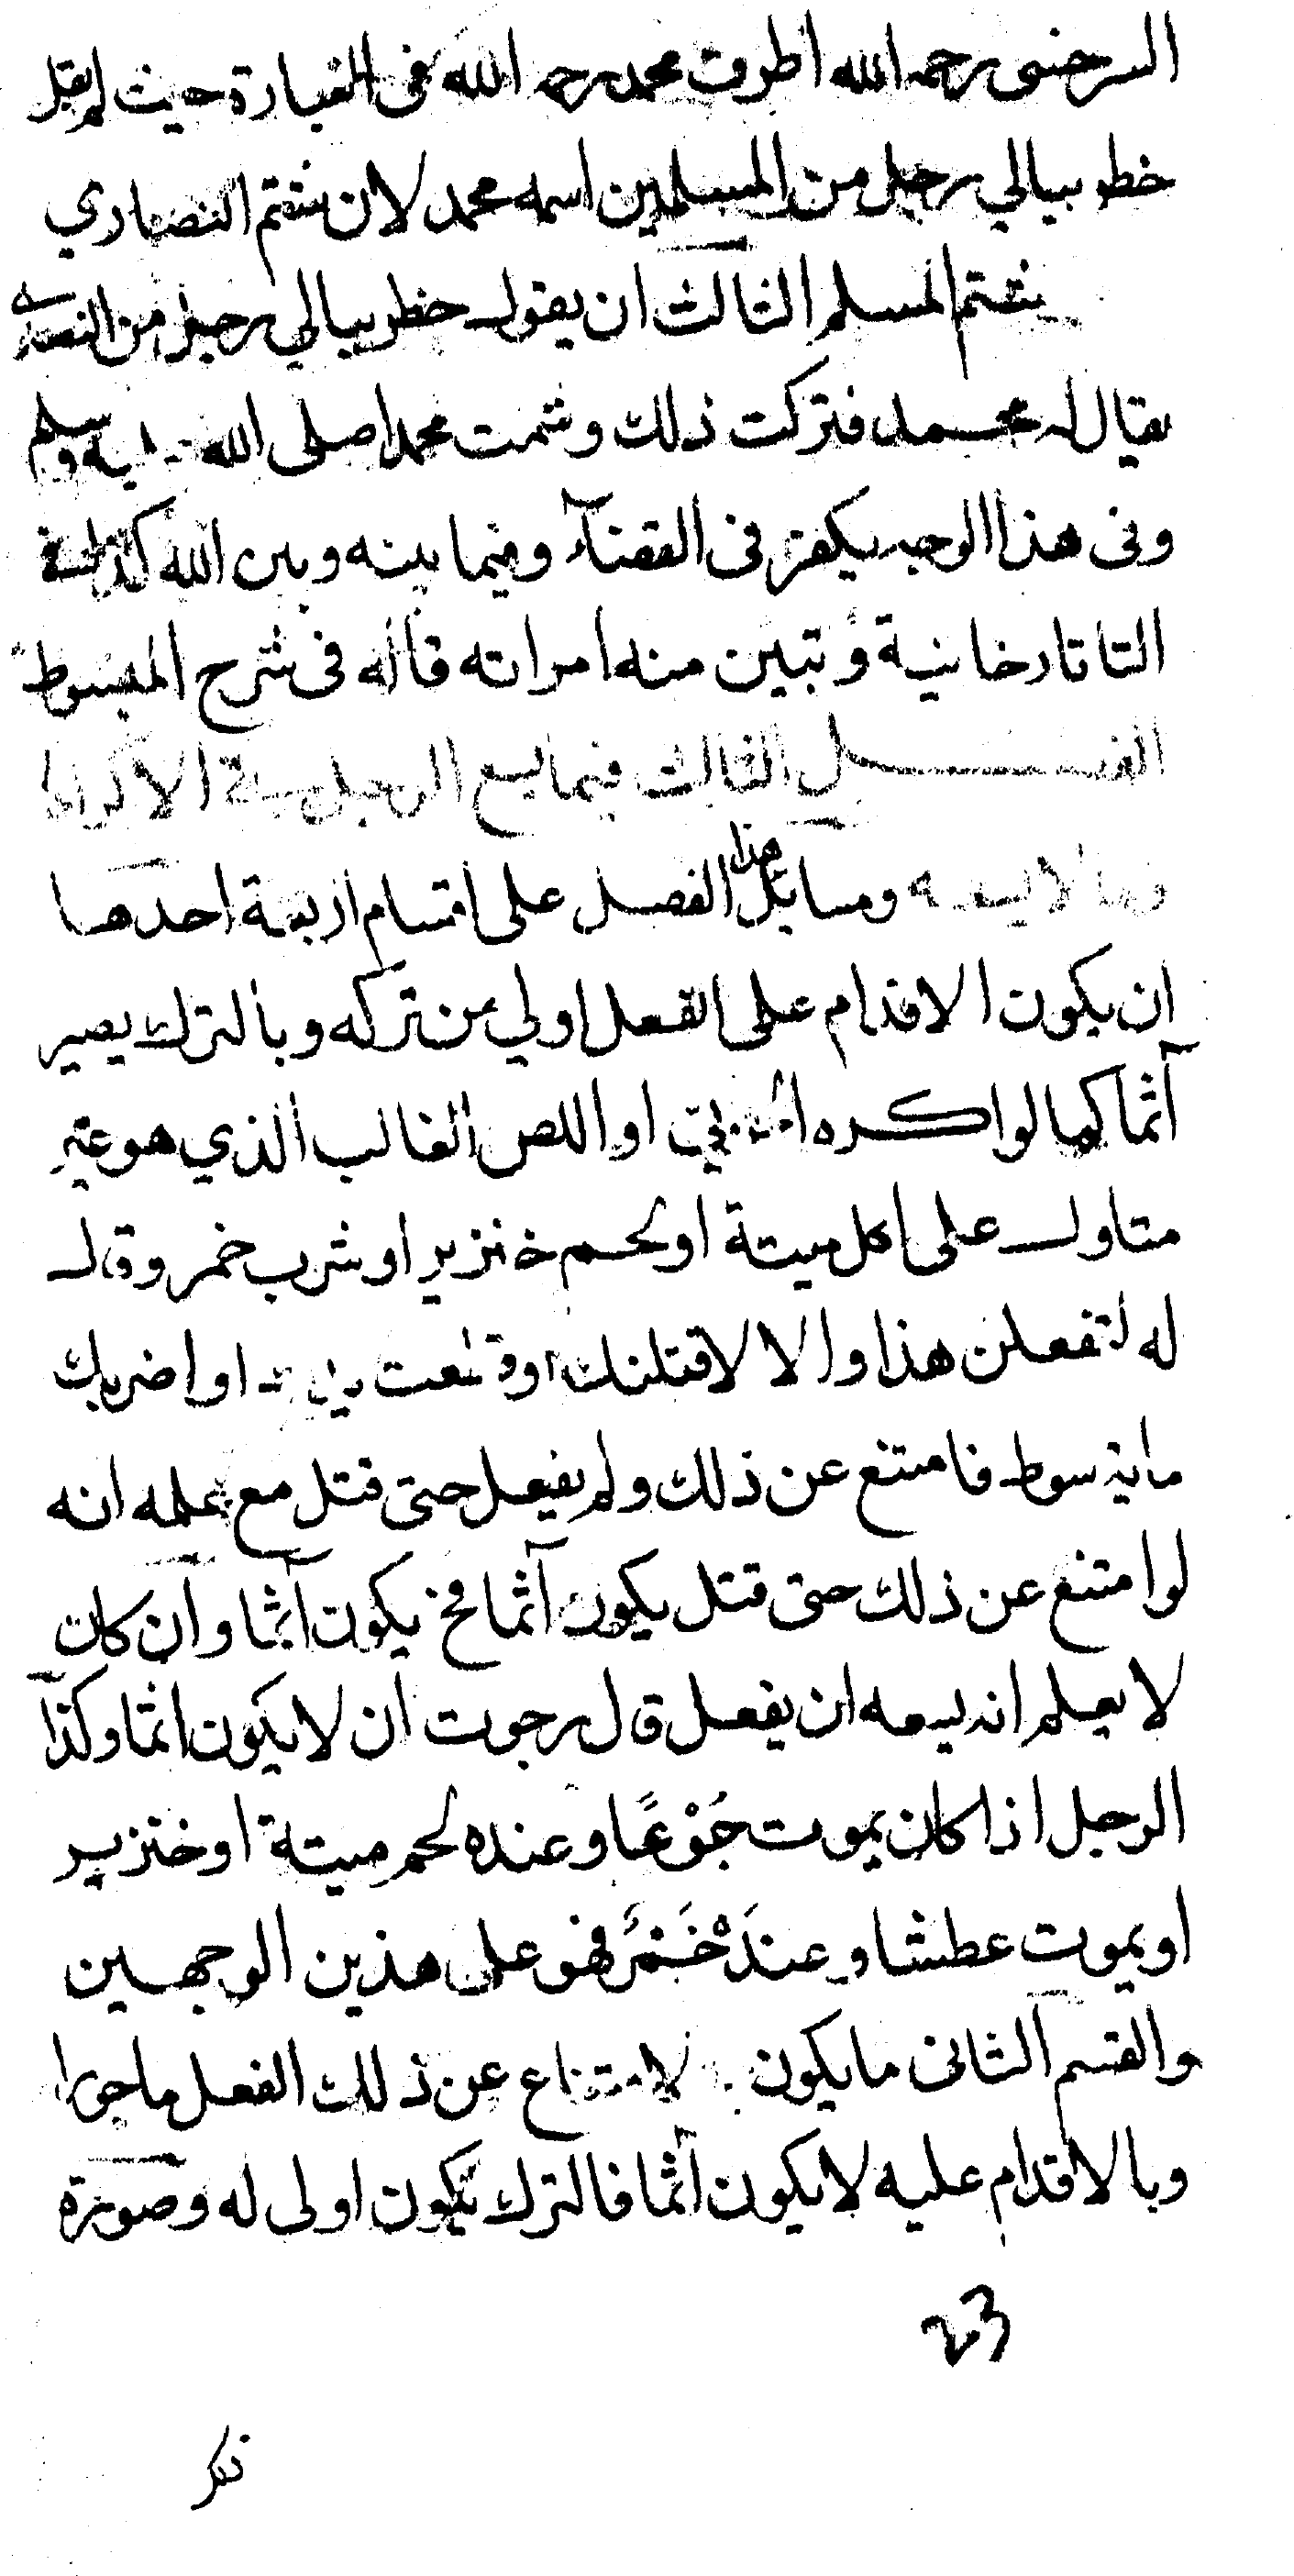 السرخسى رحمه الله اطرف محمد رحمه الله فى العبارة حيث لم يقل
خطر ببالي رجل من المسلمين اسمه محمد لان شتم النصاري
يشتم المسلم الثالث ان يقول خطر ببالي رجل من النصارى
يقال له محمد فتركت ذلك وشتمت محمدا صلى الله عليه وسلم
وفى هذا الوجه يكفر فى القضآء وفيما بينه وبين الله كذا فى
التاتارخانية وتبين منه امراته قاله فى شرح المبسوط
الفصل الثالث فيما يسع الرجل فى الاكراه
وما لا يسعه ومسايل هذا الفصل على اقسام اربعة احدها
ان يكون الاقدام على الفعل اولي من تركه وبالترك يصير
آثما كما لو اكره الحربي او اللص الغالب الذي هو غير
متاول على اكل ميتة او لحم خنزير او شرب خمر وقال
له لتفعلن هذا والا لاقتلنك او قطعت او اضربك
ماية سوط فامتنع عن ذلك ولم يفعل حتى قتل مع علمه انه
لو امتنع عن ذلك حتى قتل يكون آثما فح يكون آثما وان كان
لا يعلم انه يسعه ان يفعل قال رجوت ان لا يكون اثما وكذا
الرجل اذا كان يموت جُوْعًا وعنده لحم ميتة او خنزير
او يموت عطشا وعندَهْ خَمْرٌ فهو على هذين الوجهين
والقسم الثانى ما يكون لامتناع عن ذلك الفعل ماجورا
وبالاقدام عليه لا يكون آثما فالترك يكون اولى له وصورة
23